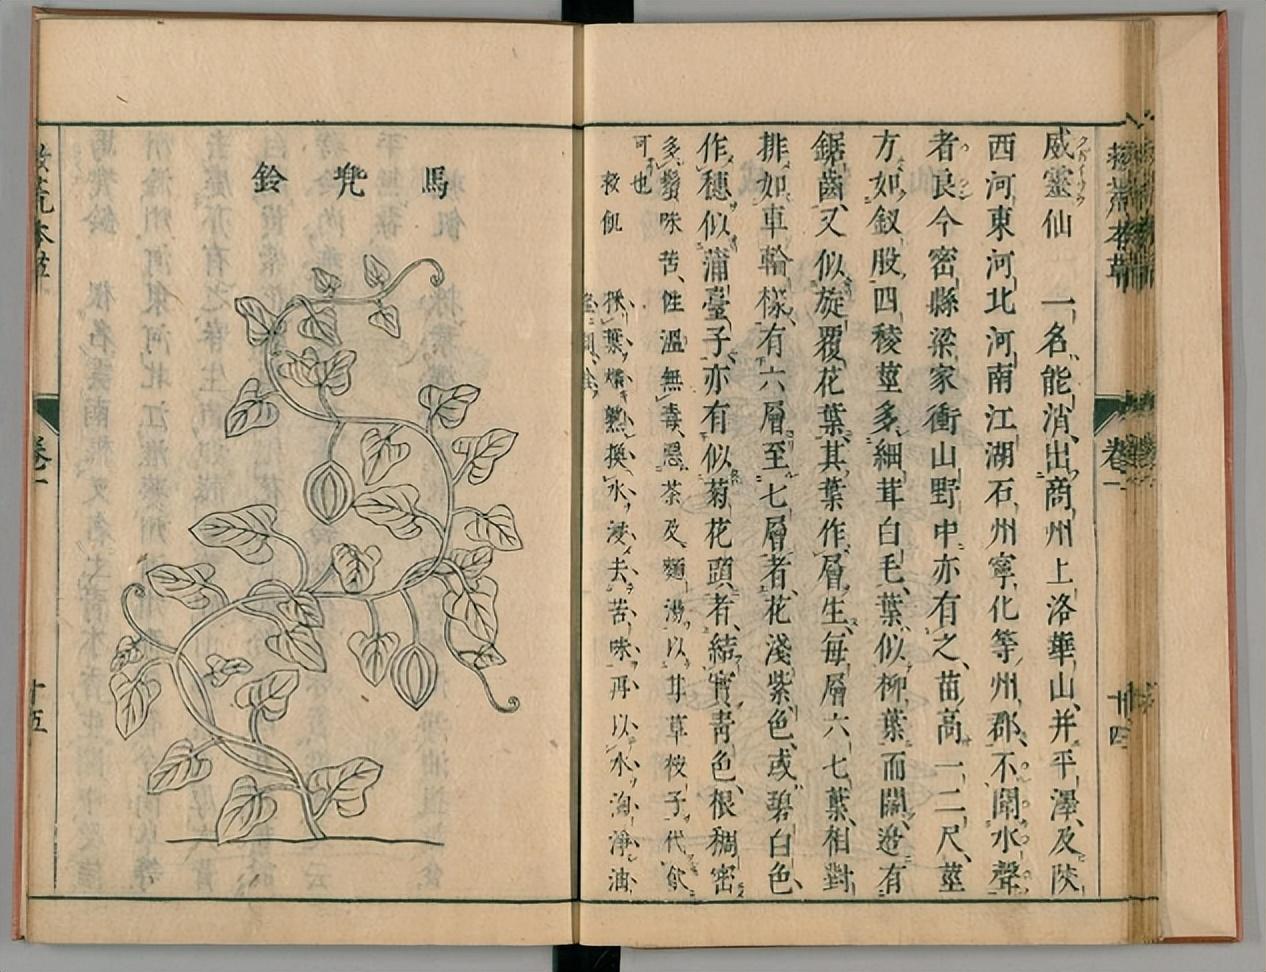 威靈仙 一名能消出商州上洛華山并平澤及陜
西河東河北河南江湖石州寧化等州郡不聞水聲
者良今密縣梁家衝山野中亦有之苗高一二尺莖
方如釵股四稜莖多細茸白毛葉似柳葉而闊邊有
鋸齒又似旋覆花葉其葉作層生每層六七葉相對
排如車輪樣有六層至七層者花淺紫色或碧白色
作穗似蒲臺子亦有似菊花頭者結實青色根稠密
多鬚味苦性溫無毒惡茶及麵湯以甘草梔子代飲
可也
救飢 採葉煠熟換水浸去苦味再以水淘淨油
卷一
廿四
馬兜鈴
救荒本草
卷一
十五